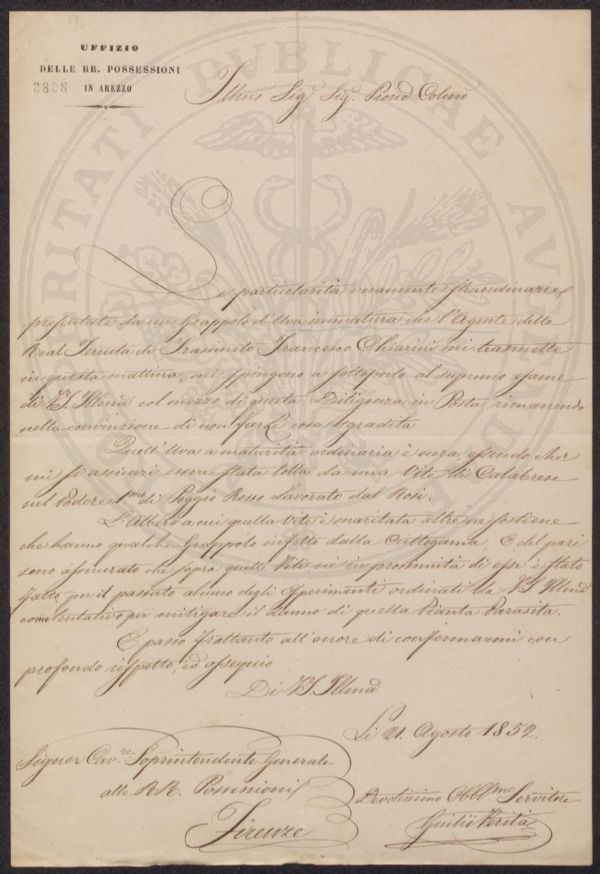 UFFIZIO
DELLE RR. POSSESSIONI
3808 IN AREZZO
Illmo Sig. Sig. Prone Colmo
Le particolarità veramente straordinarie
presentate da un Grappolo d'Uva immatura che l'Agente della
Real Tenuta di Frassineto Francesco Chiarini mi trasmette
in questa mattina, mi spingono a sottoporlo al supremo esame
di VS. Illma col mezzo di questa Diligenza in Posta, rimanendo
nella convinzione di non farle cosa sgradita
Quell'Uva a maturità ordinaria è nera, essendo che
mi si assicuri essere stata tolta da una Vite di Calabrese
nel Podere 1mo di Poggio Rosso lavorato dal Rosi.
L'Albero a cui quella Vite è maritata altre ne sostiene
che hanno qualche Grappolo infetto dalla Crittogama. E del pari
sono assicurato che sopra quelle Viti nè in prossimità di esse è stato
fatto per il passato alcuno degli Esperimenti ordinati da VS Illma
come tentativo per mitigare il danno di quella Pianta Parasita.
E passo frattanto all'onore di confermarmi con
profondo rispetto, ed ossequio
Di VS. Illma
Li 21. Agosto 1852.
Signor Cav.re Soprintendente Generale
alle RR. Possessioni
Firenze
Devotissimo Obblmo Servitore
Giulio Verità
PUBLICAE